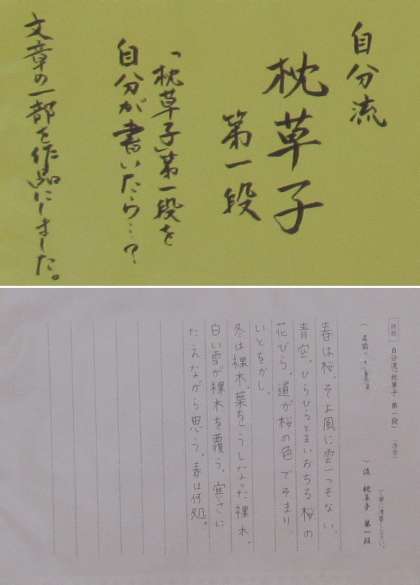 自分流
枕草子
第一段
「枕草子」第一段を
自分が書いたら…?
文章の一部を作品にしました。
自分流「枕草子・第一段」
流 枕草子 第一段
春は桜。そよ風に雲一つもない、
青空。ひらひらとまいおちる桜の
花びら。道が桜の色でそまり、
いとをかし。
冬は裸木。葉をうしなった裸木。
白い雪が裸木を覆う。寒さに
たえながら思う。春は何処。